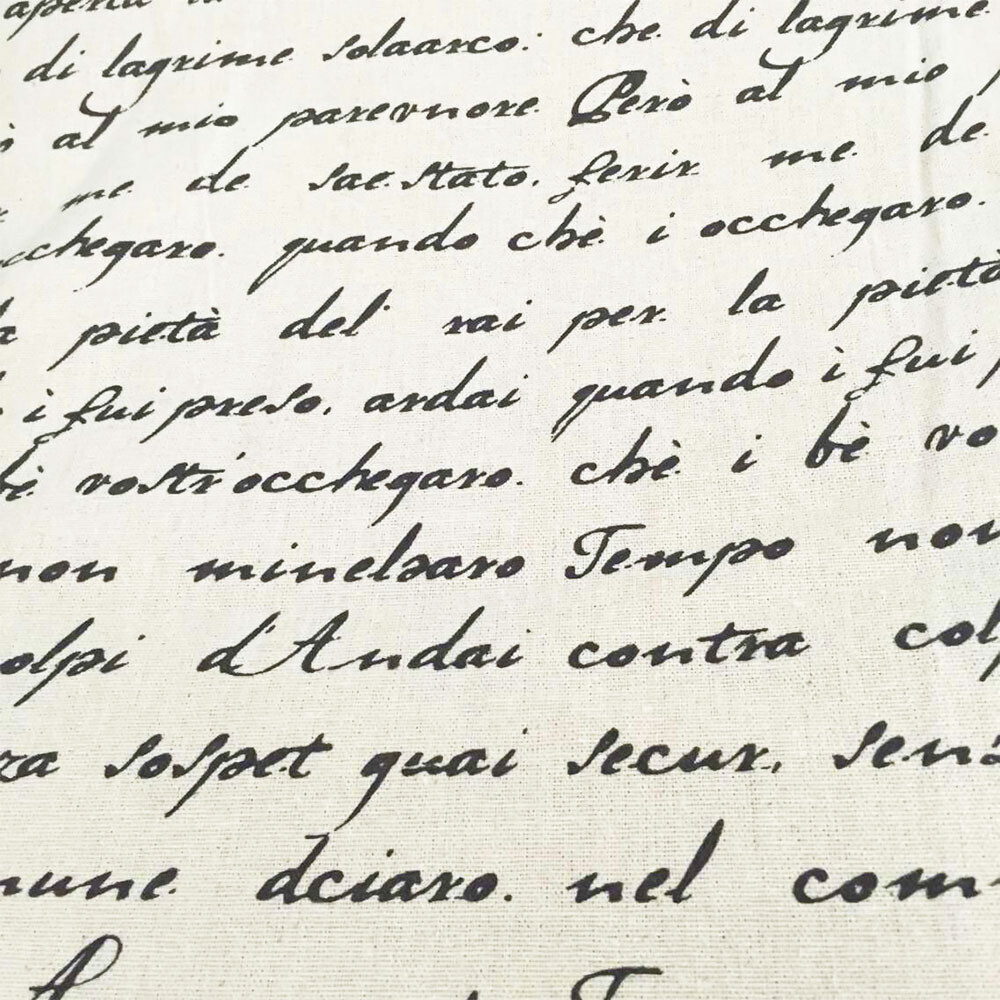 aperta
di lagrime solaarco: che di lagrime
al mio parevnore. Però al mio
me de sae.stato. ferir me de
cchegaro. quando chè i occhegaro.
pietà del rai per la pietà
i fui preso. ardai quando i fui
bè vostr'occhegaro. chè i bè vo
non minelsaro Tempo non
olpi d'Andai contra colp
za sospet quai secur. senz
mune dciaro. nel com